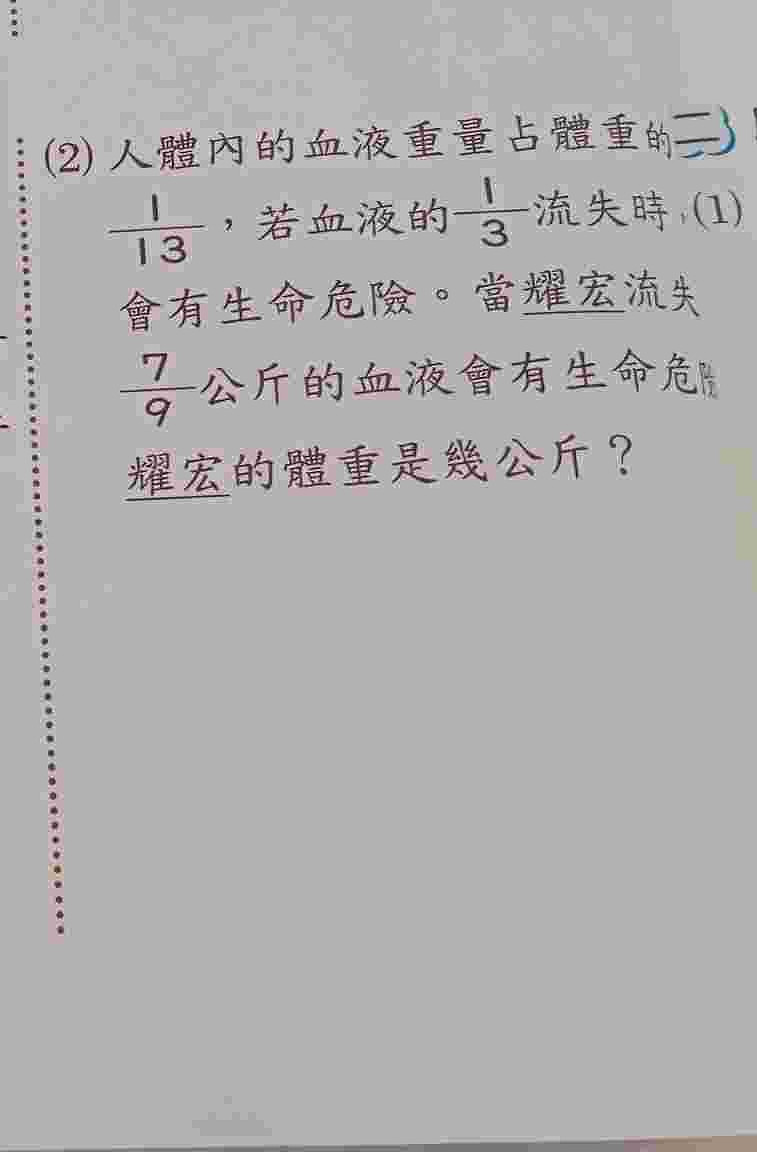 (2) 人體內的血液重量占體重的
1/13，若血液的1/3流失時，
會有生命危險。當耀宏流失
7/9公斤的血液會有生命危險
耀宏的體重是幾公斤？
二
(1)